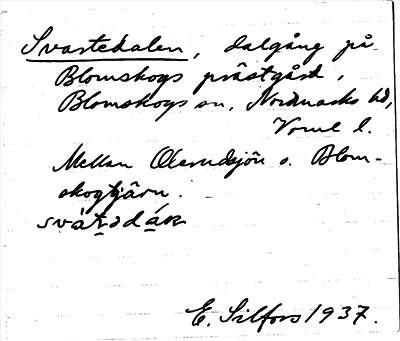 Svartedalen, dalgång på
Blomskogs prästgård,
Blomskogs sn, Nordmarks hd,
Verml l.
Mellan o. Blom-
skogtjärn.
E. Silfors 1937.